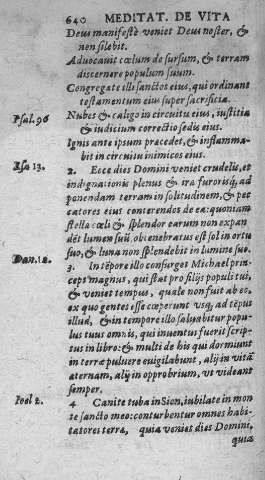 640 MEDITAT. DE VITA
Deus manifestè veniet Deus noster, &
non silebit.
Aduocauit cœlum de sursum, & terram
discernere populum suum.
Congregate illi sanctos eius, qui ordinant
testamentum eius super sacrificia.
Psal. 96 Nubes & caligo in circuitu eius, iustitia
& iudicium correctio sedis eius.
Ignis ante ipsum præcedet, & inflamma-
bit in circuitu inimicos eius.
Isa 13. 2. Ecce dies Domini veniet crudelis, et
indignationis plenus & iræ furorisq, ad
ponendam terram in solitudinem, & pec
catores eius conterendos de ea: quoniam
stellæ cœli & splendor earum non expan
dẽt lumen suũ. obtenebratus est sol in ortu
suo, & luna non splendebit in lumine suo.
Dan. 12. 3. In tẽpore illo consurget Michael prin
ceps magnus, qui stat pro filijs populi tui,
& veniet tempus, quale non fuit ab eo,
ex quo gentes esse cœperunt vsq; ad tẽpus
illud, & in tempore illo saluabitur popu-
lus tuus omnis, qui inuentus fuerit scrip-
tus in libro: & multi de his qui dormiunt
in terræ puluere euigilabunt, alij in vitã
æternam, alij in opprobrium, vt videant
semper.
Joel 2. 4 Canite tuba in Sion, iubilate in mon
te sancto meo: conturbentur omnes habi-
tatores terræ, quia veniet dies Domini,
quia